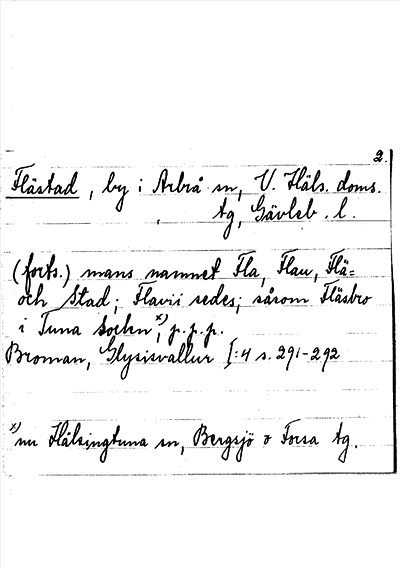 2.
Flästad, by i Arbrå sn, V. Häls. doms.
tg, Gävleb. l.
(forts.) mans namnet Fla, Flau, Flä=
och Stad; Flavii sedes; såsom Fläsbro
i Tuna Sochn x), p.p.p.
Broman, Glysisvallur I:4 s. 291-292
x) nu Hälsingtuna sn, Bergsjö o Forsa tg.